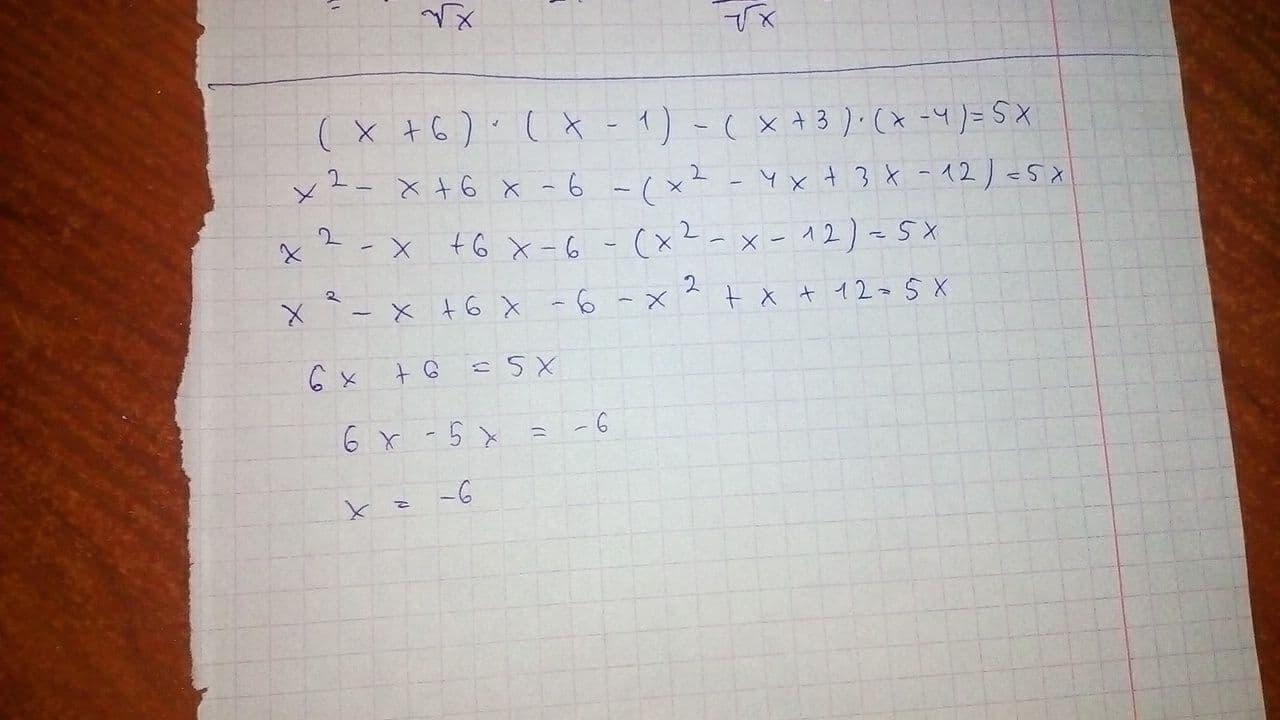 = √x √x
( x + 6 ) · ( x - 1 ) - ( x + 3 ) · ( x - 4 ) = 5x
x² - x + 6x - 6 - (x² - 4x + 3x - 12) = 5x
x² - x + 6x - 6 - (x² - x - 12) = 5x
x² - x + 6x - 6 - x² + x + 12 = 5x
6x + 6 = 5x
6x - 5x = -6
x = -6